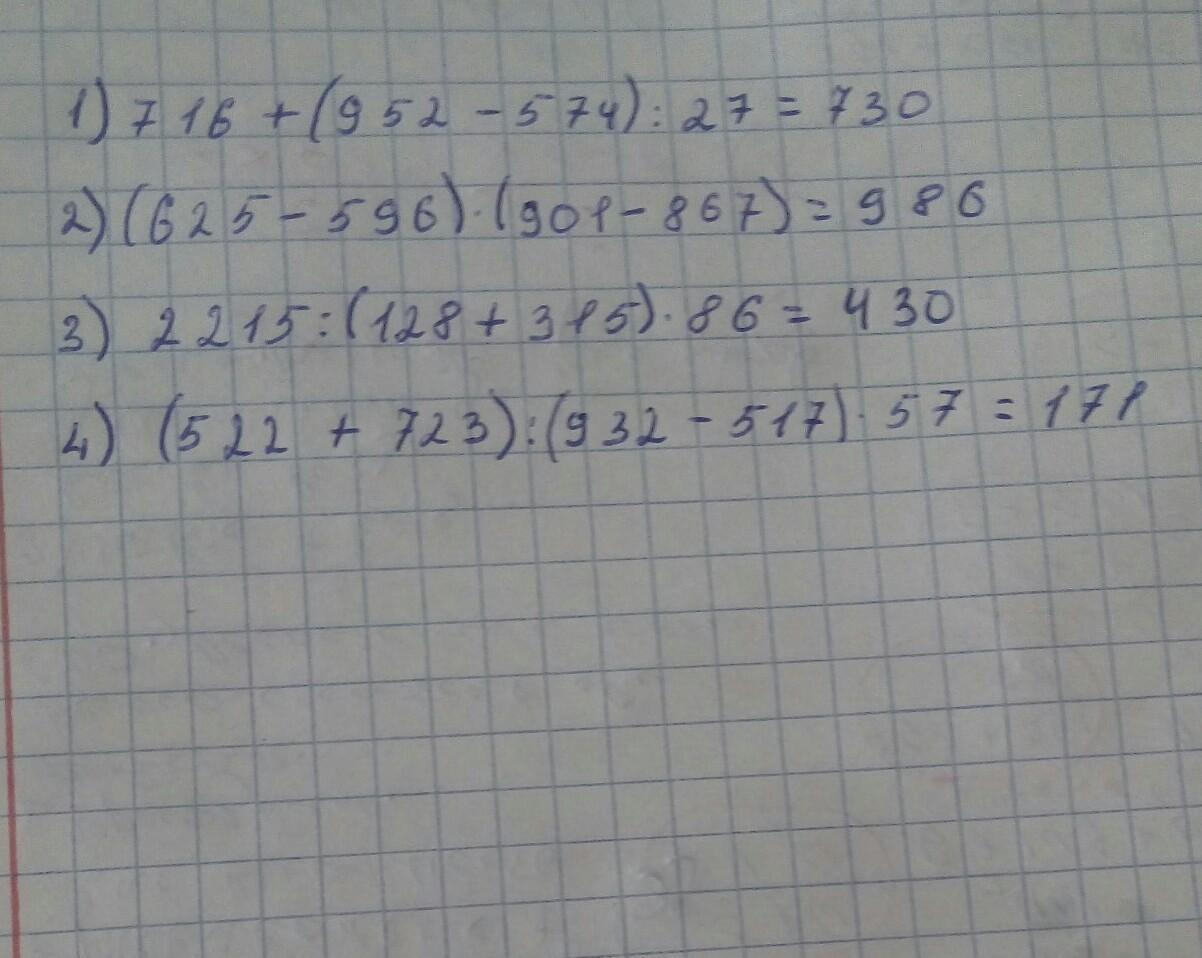 1) 716 + (952 - 574) : 27 = 730
2) (625 - 596) · (901 - 867) = 986
3) 2215 : (128 + 315) · 86 = 430
4) (522 + 723) : (932 - 517) · 57 = 171